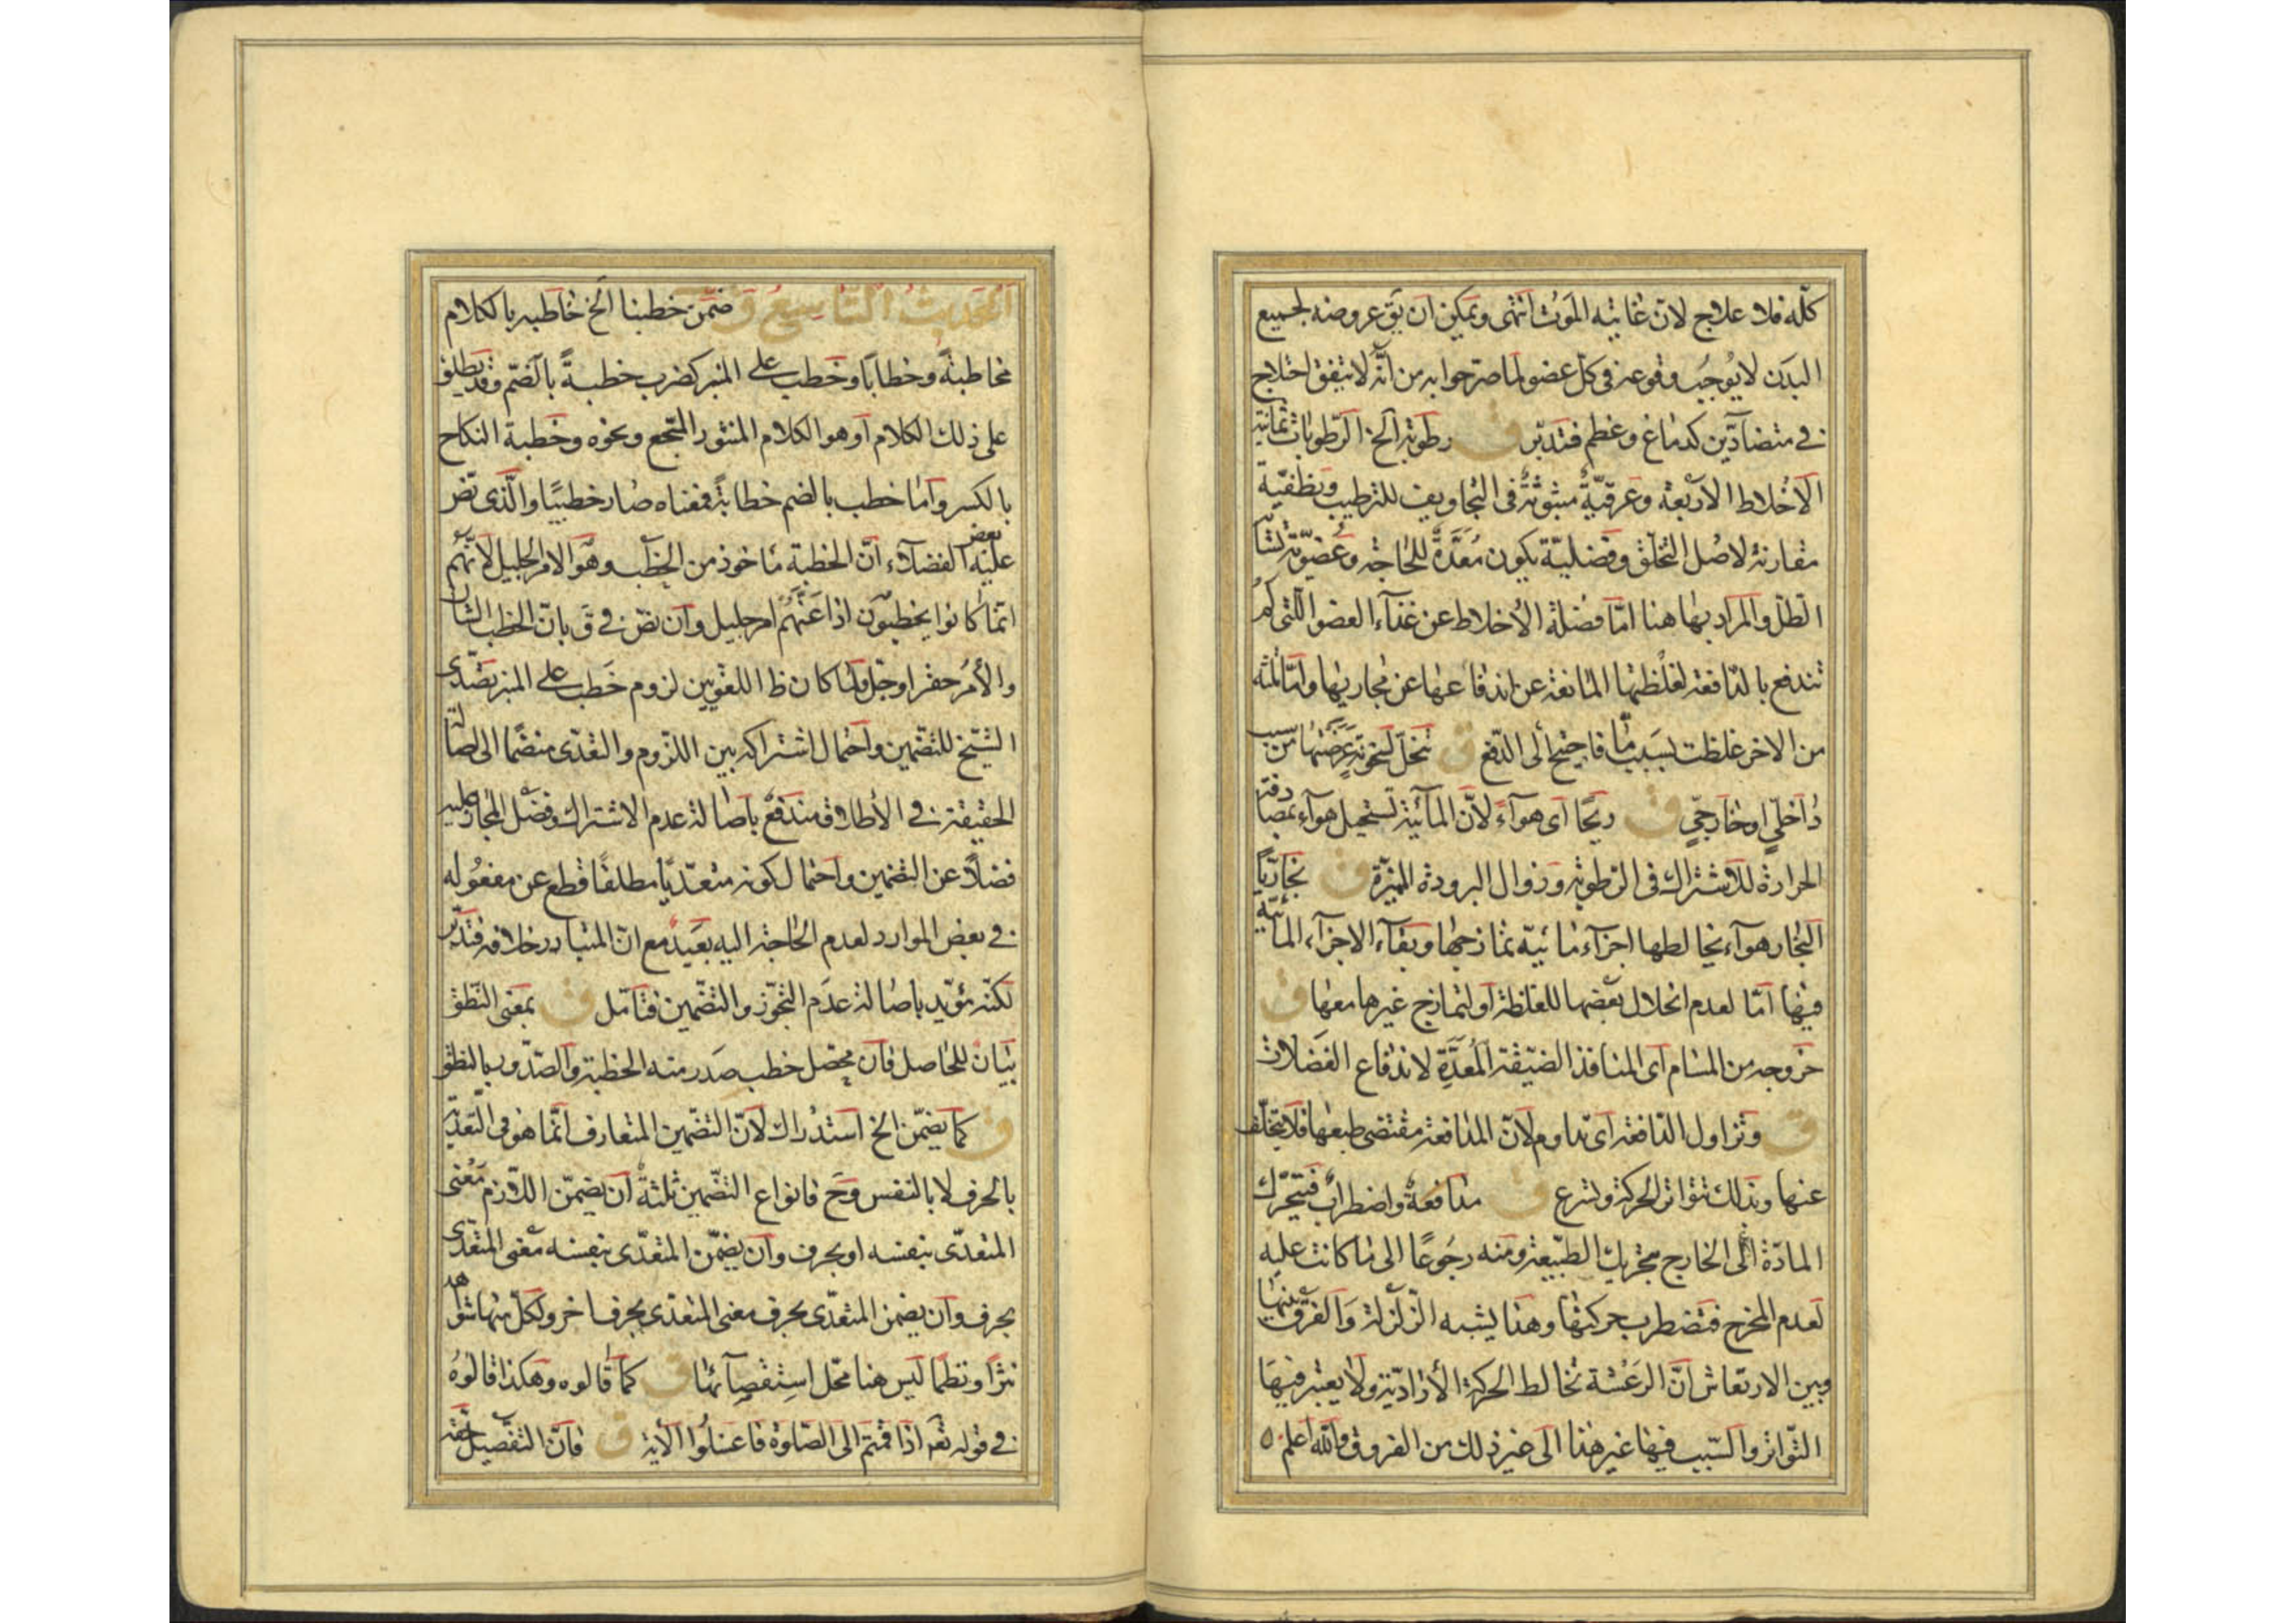 كلّه فلا علاج لانّ غايته الموت انتهى ويمكن ان يق عروضه لجميع
البدن لا يوجب وقوعه فى كلّ عضو لما صرّحوا به من انّه لا يتفق اختلاج
فى متضادّين كدماغ وعظم فتدبّر ق رطوبة الخ الرّطوبات ثمانية
الاخلاط الاربعة وعرقيّة مبثوثة فى التجاويف للترطيب
مقارنة لاصل التخلّق وفضليّة يكون معدّة للحاجة وعضويّة
الطلّ والمراد بها هنا امّا فضلة الاخلاط عن غذاء العضو الّتى لم
تندفع بالدّافعة لغلظتها المانعة عن اندفاعها عن مجاريها وامّا
من الاخر غلظت بسبب ما فاحتيج الى الدّفع ق تخلّ لسخونة عرضتها من سبب
داخلىّ او خارجىّ ق ريحًا اى هوآءً لانّ المائيّة تستحيل هوآء بمصادفة
الحرارة للاشتراك فى الرّطوبة وزوال البرودة المميّزة ق بخاريًّا
البخار هوآء يخالطها اجزآء مائيّة تمازجها وبقآء الاجزآء المائيّة
فيها امّا لعدم انحلال بعضها للغلظة او لتمازج غيرها معها ق
خروجه من المسام اى المنافذ الضيّقة المُعدّة لاندفاع الفضلات
ق وتزاول الدّافعة اى تداوم لانّ المدافعة مقتضى طبعها فلا يتخلّف
عنها وبذلك تتواتر الحركة وتسرع ق مدافعة واضطراب فتتحرّك
المادّة الى الخارج بتحريك الطّبيعة ومنه رجوعًا الى ما كانت عليه
لعدم المخرج فتضطرب حركتها وهذا يشبه الزّلزلة والفرق بينها
وبين الارتعاش انّ الرّعشة تخالط الحركة الأراديّة ولا يعتبر فيها
التّواتر والسّبب فيها غير هذا الى غير ذلك من الفروق والله اعلم
الحديث التاسع ق ضمّن خطبنا الخ خاطبه بالكلام
مخاطبة وخطابًا وخطب على المنبر كضرب خطبةً بالضّم وقد يطلق
على ذلك الكلام او هو الكلام المنثور المسجّع ونحوه وخطبة النكاح
بالكسر وامّا خطب بالضم خطابةً فمعناه صار خطيبًا والّذى نصّ
عليه بعض الفضلاء انّ الخطبة مأخوذ من الخطب وهو الامر الجليل لانّهم
انّما كانوا يخطبون اذا عنّهم امر جليل وان نصّ فى ق بانّ الخطب الشأن
والأمر حقر او جلّ ولمّا كان ظ اللغويّين لزوم خطب على المنبر تصدّى
الشّيخ للتضمين واحتمال اشتراكه بين اللزوم والتعدّى منضمّا الى اصالة
الحقيقة فى الأطلاق مندفع باصالة عدم الاشتراك وفضل المجاز عليه
فضلًا عن التضمين واحتمال كونه متعدّيًا مطلقًا قطع عن مفعوله
فى بعض الموارد لعدم الحاجة اليه بعيد مع انّ المتبادر خلافه فتدبّر
لكنّه مؤيّد باصالة عدم التجوّز والتضمين فتامّل ق بمعنى النّطق
بيان للحاصل فانّ محصّل خطب صدر منه الخطبة والصّدور بالنطق
ق كما يضمّن الخ استدراك لانّ التضمين المتعارف انّما هو فى التّعدية
بالحرف لا بالنفس وح فانواع التّضمين ثلثة ان يضمّن اللازم معنى
المتعدّى بنفسه او بحرف وان يضمّن المتعدّى بنفسه معنى المتعدّى
بحرف وان يضمن المتعدّى بحرف معنى المتعدّى بحرف اخر ولكلّ منها شواهد
نثرًا ونظمًا ليس هنا محلّ استقصآئها ق كما قالوه وهكذا قالوه
فى قوله تعـ اذا قمتم الى الصّلوة فاغسلوا الآية ق فانّ التفصيل حقّه